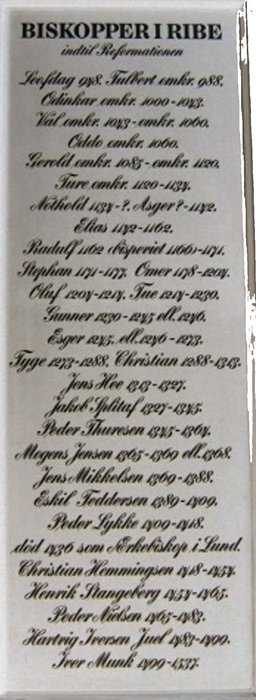 BISKOPPER I RIBE
indtil Reformationen
Leofdag 948. Fulbert omkr. 988.
Odinkar omkr. 1000-1043.
Val omkr. 1043-omkr. 1060.
Oddo omkr. 1060.
Gerold omkr. 1085-omkr. 1120.
Ture omkr. 1120-1134.
Nothold 1134-?. Asger ?-1142.
Elias 1142-1162.
Radulf 1162 (bispeviet 1166)-1171.
Stephan 1171-1177. Omer 1178-1204.
Oluf 1204-1214. Tue 1214-1230.
Gunner 1230-1245 ell. 1246.
Esger 1245. ell. 1246-1273.
Tyge 1273-1288. Christian 1288-1313.
Jens Hee 1313-1327.
Jakob Splitaf 1327-1345.
Peder Thuresen 1345-1364.
Mogens Jensen 1365-1369 ell. 1368.
Jens Mikkelsen 1369-1388.
Eskil Teddersen 1389-1409.
Peder Lykke 1409-1418.
død 1436 som Ærkebiskop i Lund.
Christian Hemmingsen 1418-1454.
Henrik Stangeberg 1454-1465.
Peder Nielsen 1465-1483.
Hartvig Iversen Juel 1483-1490.
Iver Munk 1499-1537.